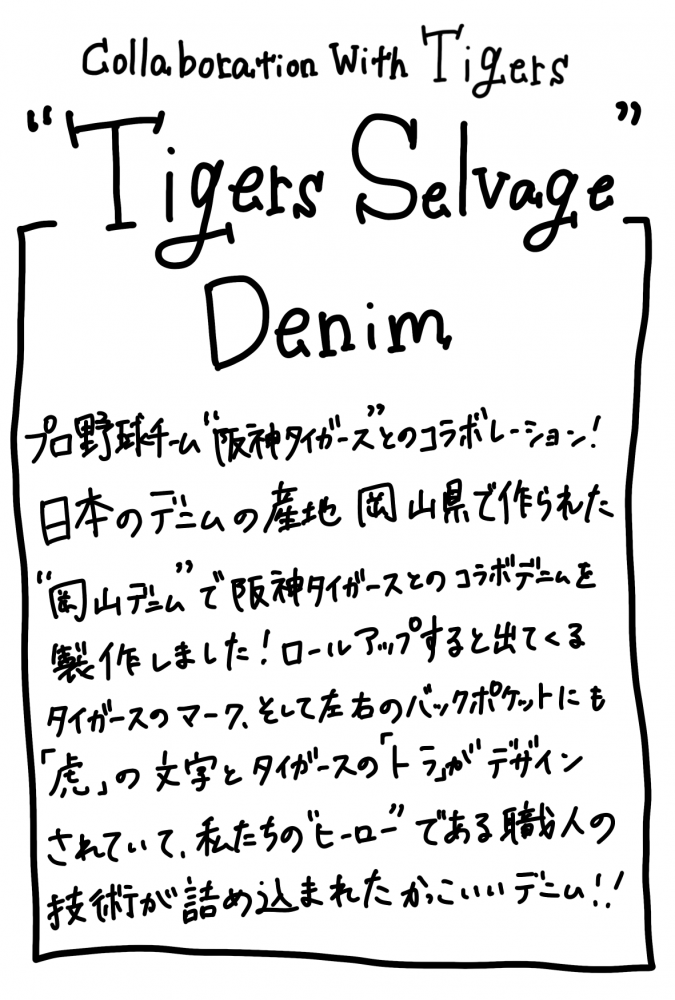 Collaboration With Tigers
“Tigers Selvage”
Denim
プロ野球チーム“阪神タイガース”とのコラボレーション!
日本のデニムの産地 岡山県で作られた
“岡山デニム”で阪神タイガースとのコラボデニムを
製作しました!ロールアップすると出てくる
タイガースのマーク、そして左右のバックポケットにも
「虎」の文字とタイガースの「トラ」がデザイン
されていて、私たちの“ヒーロー”である職人の
技術が詰め込まれたかっこいいデニム!!